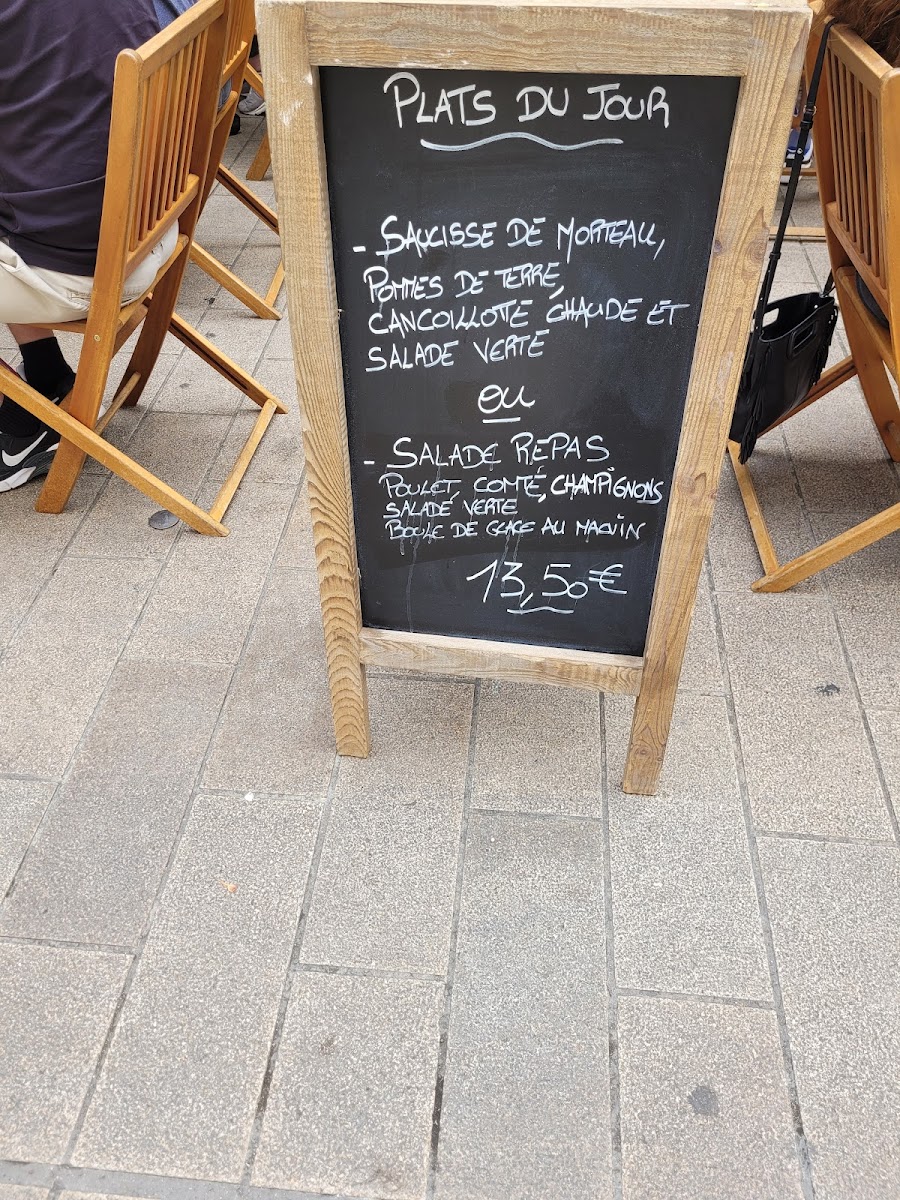 PLATS DU JOUR
- SAUCISSE DE MORTEAU,
POMMES DE TERRE,
CANCOILLOTTE CHAUDE ET
SALADE VERTE
OU
- SALADE REPAS
POULET, COMTÉ, CHAMPIGNONS
SALADE VERTE
BOULE DE GLACE AU MAQUIN
13,50€